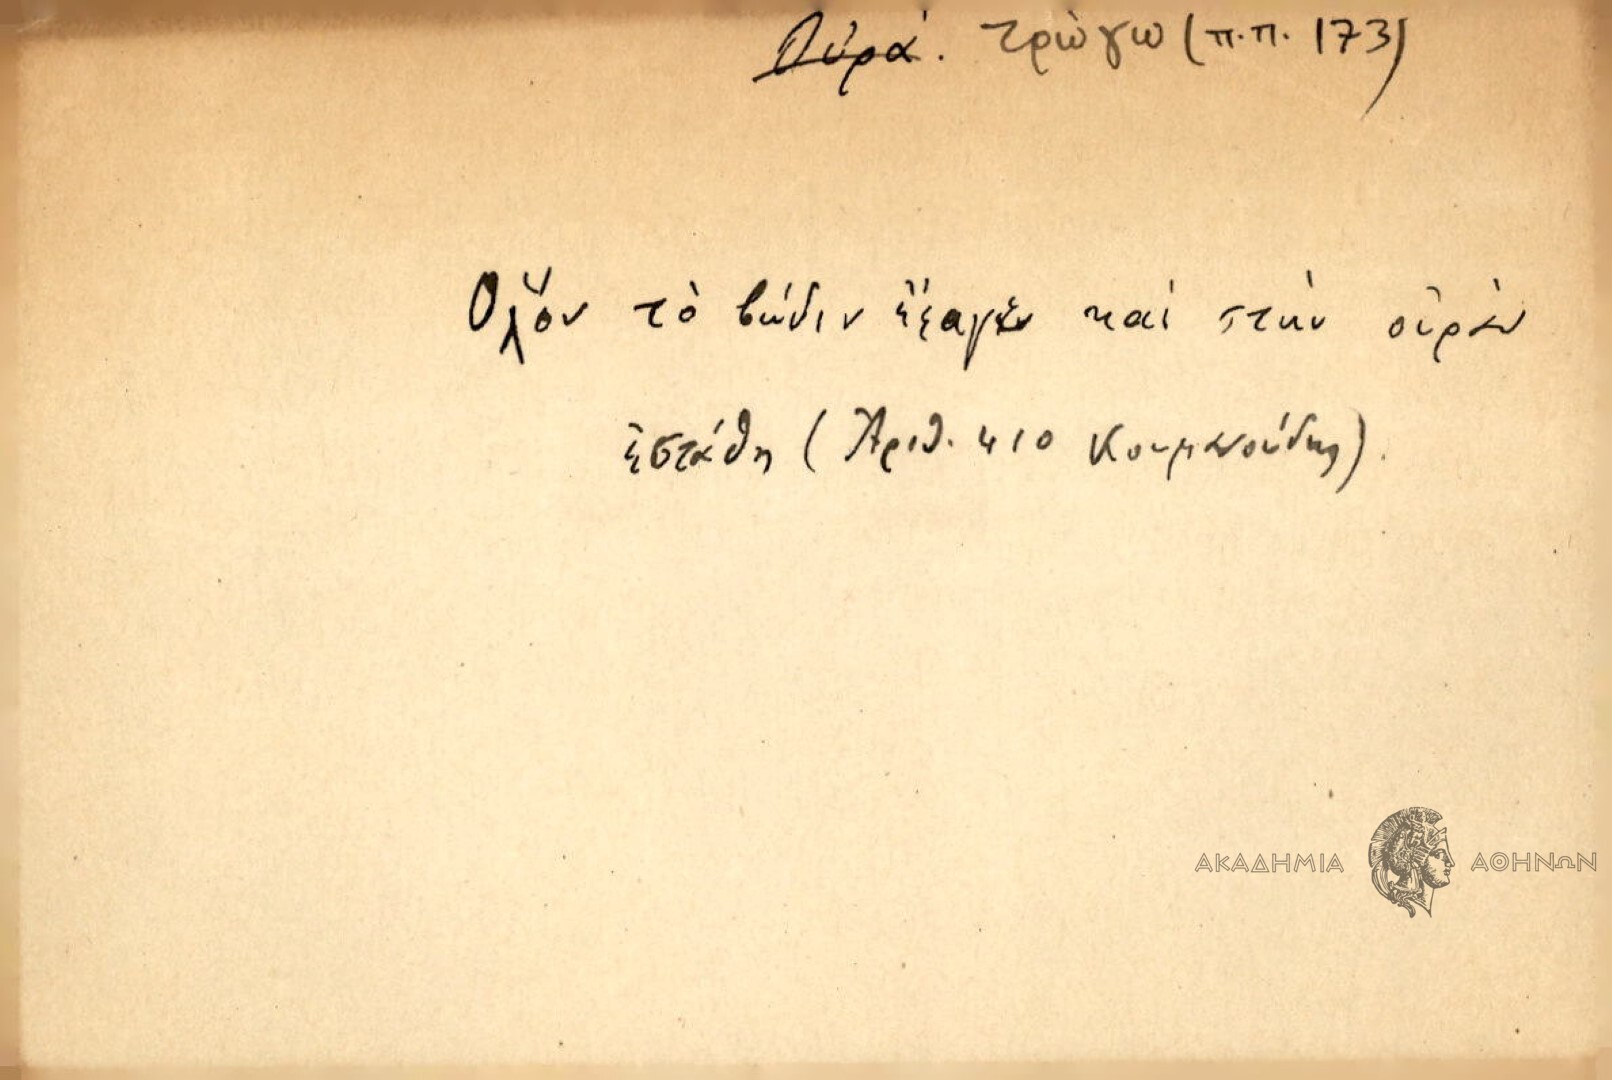 Οὐρά. τρώγω (π.π. 173)
Ὅλον τὸ βώδιν ἔφαγεν καὶ στὴν οὐρὰν
ἐστάθη (Ἀριθ. 410 Κουμανούδης).
ΑΚΑΔΗΜΙΑ ΑΘΗΝΩΝ